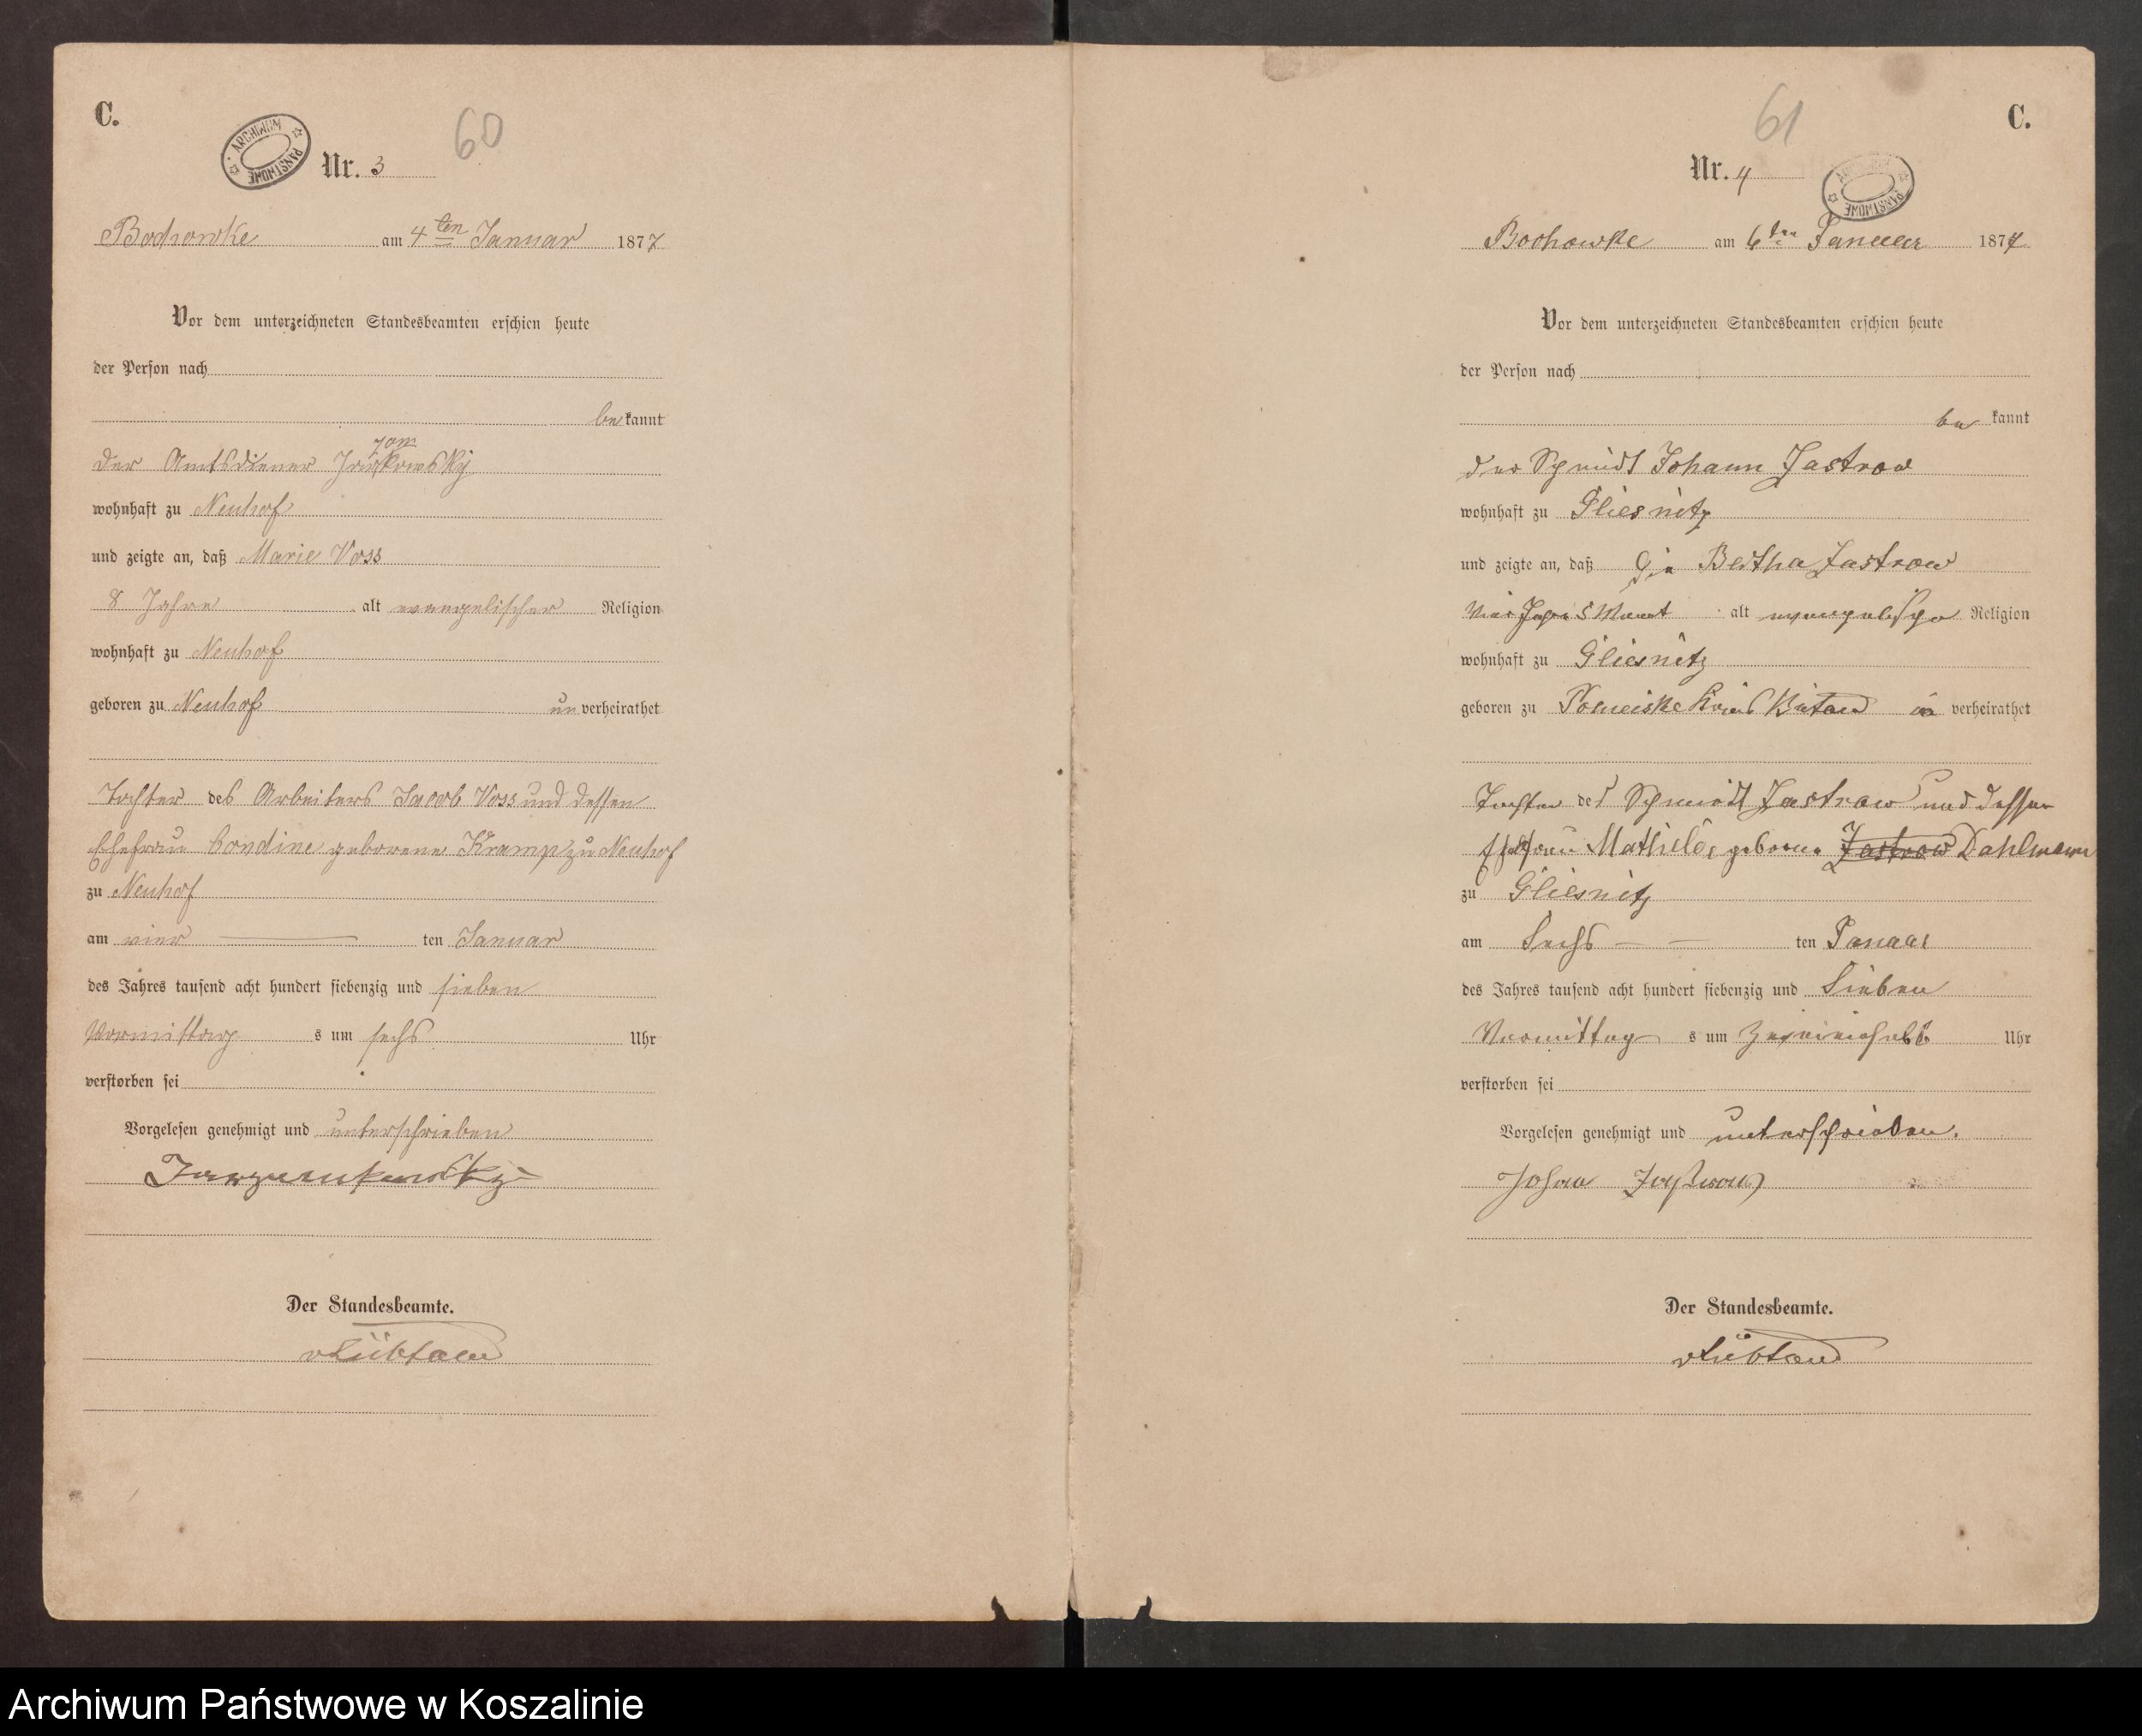 C.
60
ARCHIWUM PAŃSTWOWE
Nr. 3
Bochowke am 4ten Januar 1877
Vor dem unterzeichneten Standesbeamten erschien heute
der Person nach
be kannt
der Amtsdiener
wohnhaft zu Neuhof
und zeigte an, daß Marie Voss
8 Jahre alt evangelischer Religion
wohnhaft zu Neuhof
geboren zu Neuhof un verheirathet
Tochter des Arbeiters Jacob Voss und dessen
Ehefrau geborene Kramp zu Neuhof
zu Neuhof
am vier ten Januar
des Jahres tausend acht hundert siebenzig und sieben
Vormittag s um sechs Uhr
verstorben sei
Vorgelesen genehmigt und unterschrieben
Der Standesbeamte.
61
C.
Nr. 4
ARCHIWUM PAŃSTWOWE
Bochowke am 6ten Januar 1877
Vor dem unterzeichneten Standesbeamten erschien heute
der Person nach
be kannt
der Schmidt Johann Jastrow
wohnhaft zu Gliesnitz
und zeigte an, daß die Bertha Jastrow
Vier Jahr 5 Monat alt evangelische Religion
wohnhaft zu Gliesnitz
geboren zu Pomeiske Kreis Bütow un verheirathet
Tochter des Schmidt Jastrow und dessen
Ehefrau Mathilde geborne Jastrow Dahlmann
zu Gliesnitz
am Sechs ten Januar
des Jahres tausend acht hundert siebenzig und Sieben
Vormittag s um Uhr
verstorben sei
Vorgelesen genehmigt und unterschrieben.
Johan Jastrow
Der Standesbeamte.
Archiwum Państwowe w Koszalinie